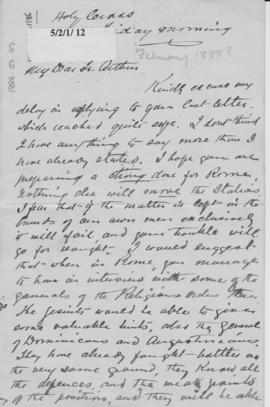 Holy Cross
5/2/1/12
Friday morning
February 1887?
My Dear Fr. Arthur
Kindly excuse my
delay in replying to your last letter
which reached quite safe. I don't think
I have anything to say more than I
have already stated. I hope you are
preparing a strong dose for Rome,
Nothing else will move the Italians
I fear that if the matter is left in the
hands of our own men exclusively
it will fail and your trouble will
go for naught. I would suggest
that when in Rome, you manage
to have an interview with some of the
generals of the Religious orders there.
The Jesuits would be able to give
some valuable hints, also the General
of Dominicans and Augustinians.
They have already fought battles on
the very same ground, they know all
the defences, and the weak points
of the position, and they might be able